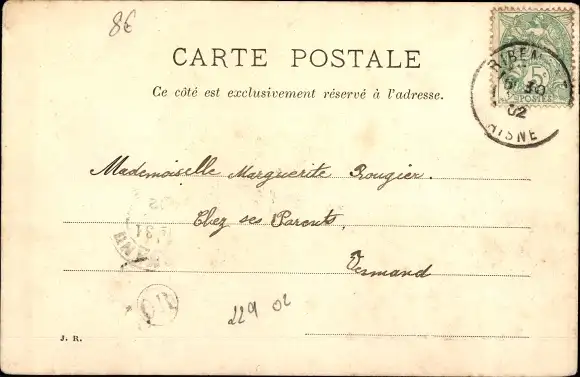 8€
CARTE POSTALE
Ce côté est exclusivement réservé à l'adresse.
5
POSTES
02
AISNE
Mademoiselle Marguerite Rougier.
Chez ses Parents,
Vermand
229 02
J. R.